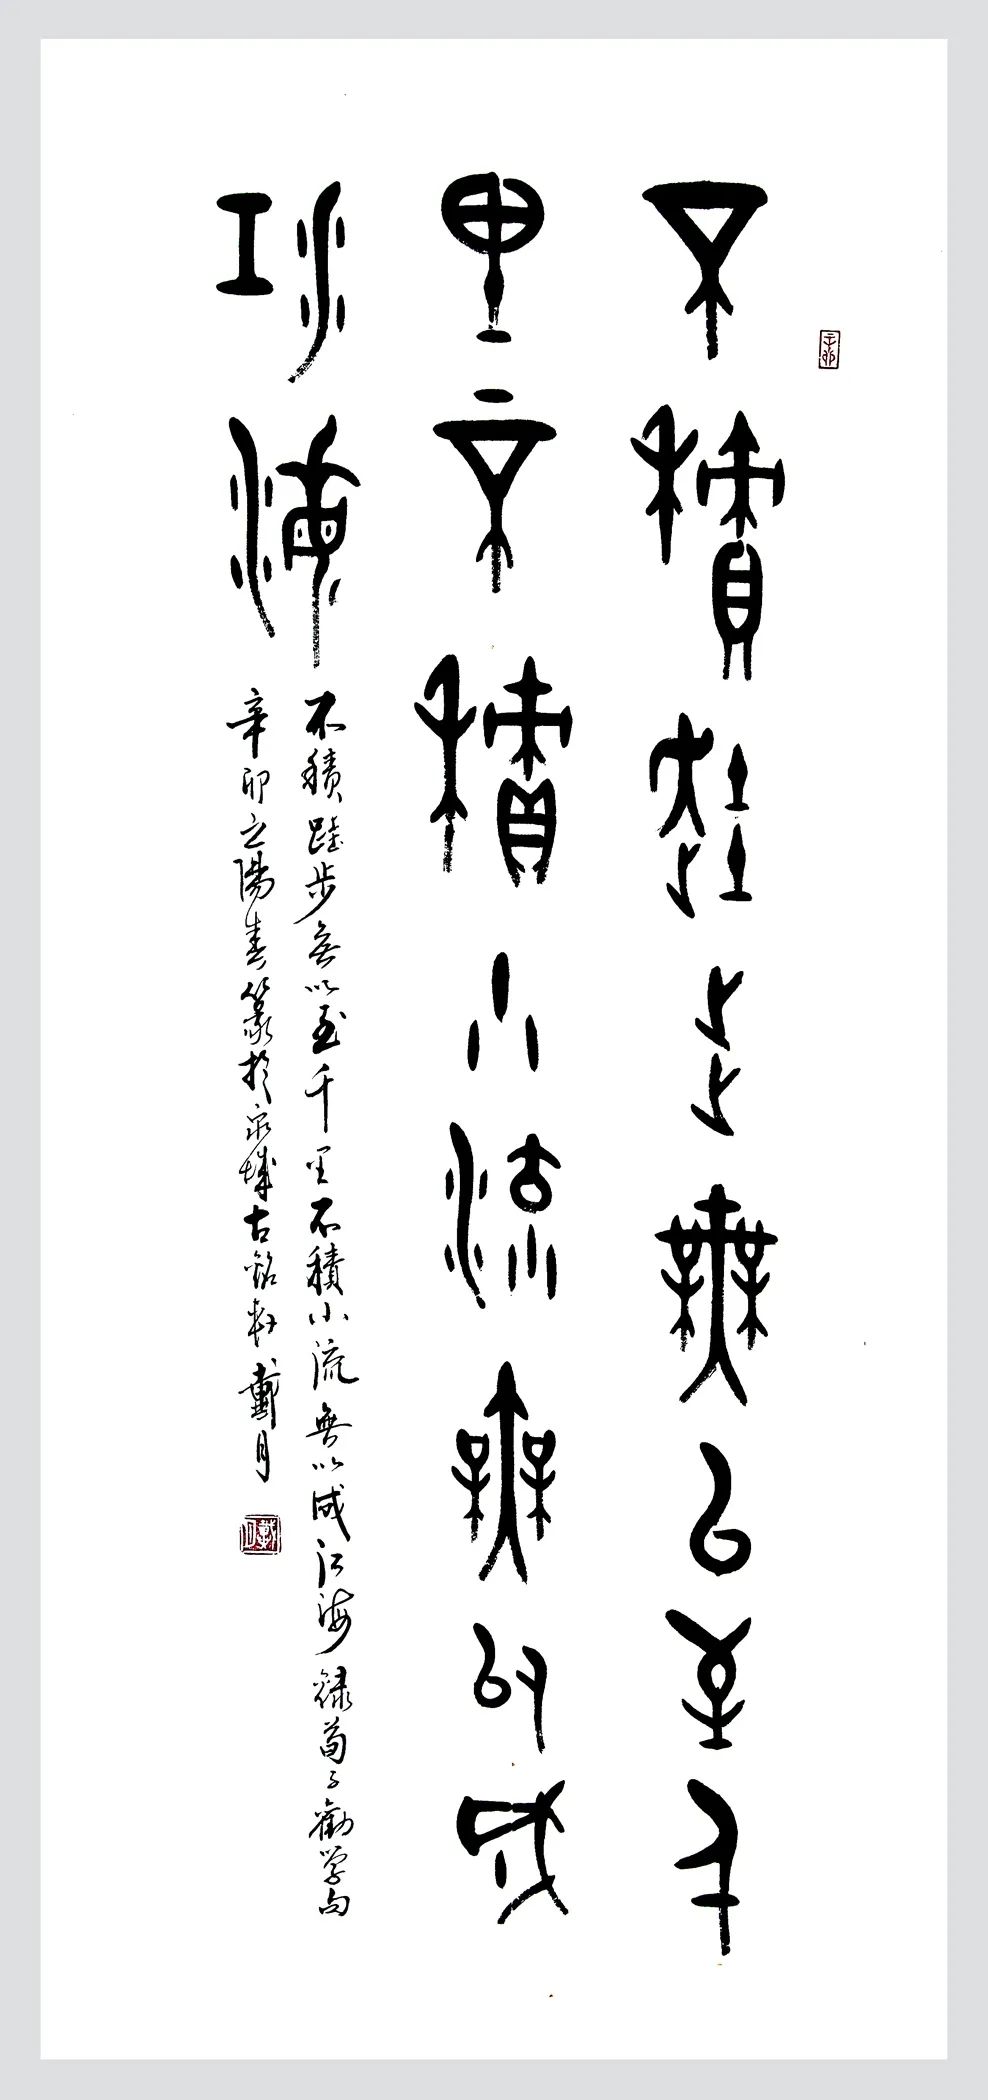 不積跬步無以至千
里不積小流無以成
江海
不積跬步無以至千里不積小流無以成江海錄荀子勸学句
辛卯之陽春篆於泉城古銘軒戴月
辛卯